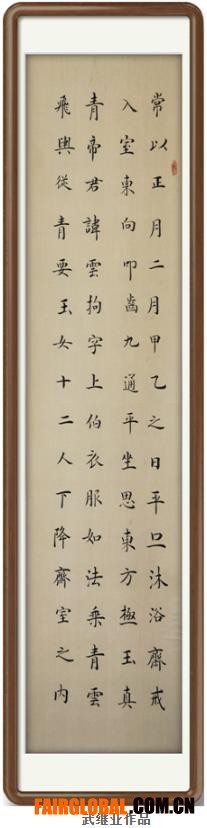 常以正月二月甲乙之日平旦沐浴齋戒
入室東向叩齒九通平坐思東方極玉真
青帝君諱雲拘字上伯衣服如法乘青雲
飛輿從青要玉女十二人下降齋室之内
武继业作品
FAIRGLOBAL.COM.CN